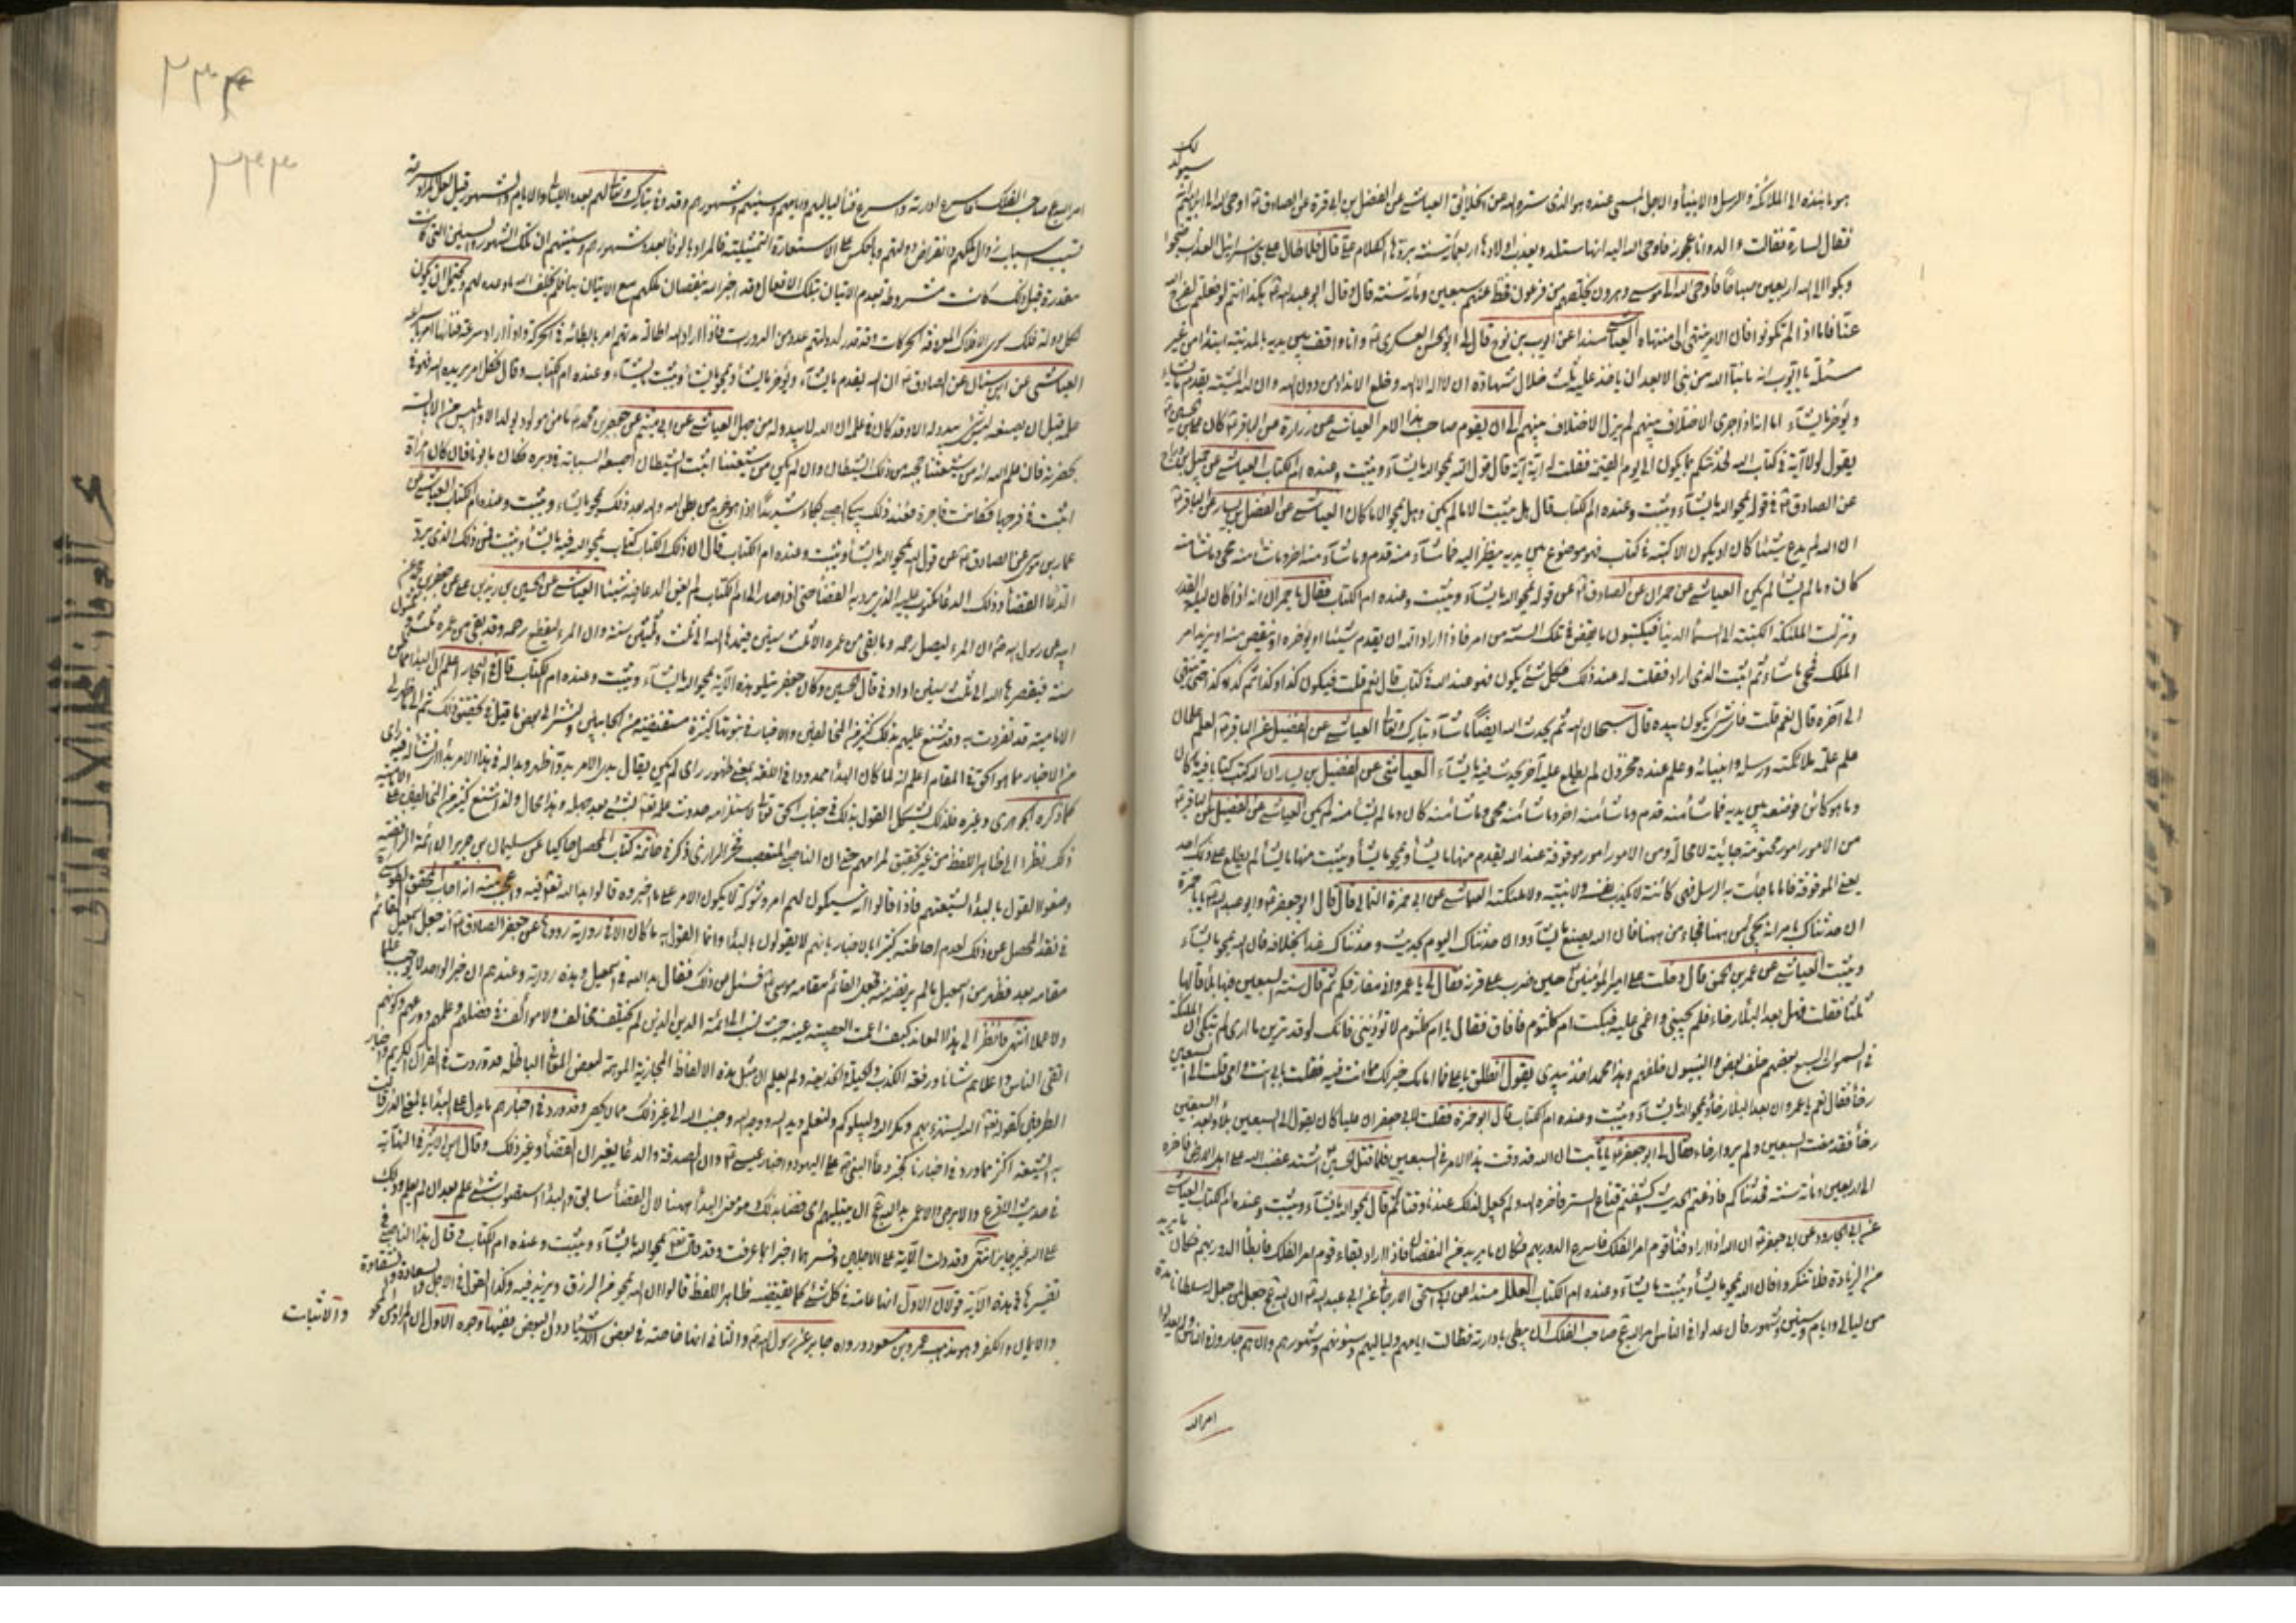 لك
سيولد
هو ما ينبذه الى الملائكة والرسل والانبياء والاجل المسمى عنده هو الذى ستره الله عن الخلائق العياشى عن الفضل بن ابى قرة عن الصادق ع اوحى الله الى ابراهيم انه
فقال لسارة فقالت ءالد وانا عجوز فاوحى الله اليه انها ستلد ويعذب اولادها اربعمأة سنة بردها الكلام على قال فلما طال على بنى اسرائيل العذاب ضجوا
وبكوا الى الله اربعين صباحا فاوحى الله الى موسى وهرون يخلصهم من فرعون فحط عنهم سبعين ومأة سنة قال وقال ابو عبد الله ع هكذا انتم لو فعلتم لفرج الله
عنا فاما اذا لم تكونوا فان الامر ينتهى الى منتهاه العياشى مسندا عن ايوب بن نوح قال قال لى ابو الحسن العسكرى ع وانا واقف بين يديه بالمدينة ابتداء من غير
مسئلة يا ايوب انه ما نبأ الله من نبى الا بعد ان ياخذ عليه ثلث خلال شهادة ان لا اله الا الله وخلع الانداد من دون الله وان لله المشية يقدم ما يشاء
ويؤخر ما يشاء اما انه اذا جرى الاختلاف بينهم لم يزل الاختلاف بينهم الى ان يقوم صاحب هذا الامر العياشى عن زرارة عن الباقر ع كان على بن الحسين ع
يقول لولا آية فى كتاب الله لحدثتكم بما يكون الى يوم القيمة فقلت له اية آية قال قول الله يمحو الله ما يشاء ويثبت وعنده ام الكتاب العياشى عن جميل بن دراج
عن الصادق ع فى قوله يمحو الله ما يشاء ويثبت وعنده ام الكتاب قال هل يثبت الا ما لم يكن وهل يمحو الا ما كان العياشى عن الفضيل بن يسار عن الباقر ع
ان الله لم يدع شيئا كان او يكون الا كتبه فى كتاب فهو موضوع بين يديه ينظر اليه فما شاء منه قدم وما شاء منه اخر وما شاء منه محى وما شاء منه
كان وما لم يشأ لم يكن العياشى عن حمران عن الصادق ع عن قوله يمحو الله ما يشاء ويثبت وعنده ام الكتاب فقال يا حمران انه اذا كان ليلة القدر
ونزلت الملئكة الكتبة الى السماء الدنيا فيكتبون ما يقضى فى تلك السنة من امر فاذا اراد الله ان يقدم شيئا او يؤخره او ينقص منه او يزيد امر
الملك فمحى ما شاء ثم اثبت الذى اراد فقلت له عند ذلك فكل شئ يكون فهو عند الله فى كتاب قال نعم قلت فيكون كذا وكذا ثم كذا وكذا حتى ينتهى
الى آخره قال نعم قلت فاى شئ يكون بيده قال سبحان الله ثم يحدث الله ايضا ما شاء تبارك وتعالى العياشى عن الفضيل عن الباقر ع العلم علمان
علم علمه ملائكته ورسله وانبيائه وعلم عنده مخزون لم يطلع عليه آخر يحدث فيه ما يشاء العياشى عن الفضيل بن يسار ان الله كتب كتابا فيه ما كان
وما هو كائن فوضعه بين يديه فما شاء منه قدم وما شاء منه اخر وما شاء منه محى وما شاء منه كان وما لم يشأ منه لم يكن العياشى عن الفضيل عن الباقر ع
من الامور امور محتومة جائية لا محالة ومن الامور امور موقوفة عند الله يقدم منها ما يشاء ويمحو ما يشاء ويثبت منها ما يشاء لم يطلع على ذلك احد
يعنى الموقوفة فاما ما جائت به الرسل فهى كائنة لا يكذب نفسه ولا نبيه ولا ملئكته العياشى عن ابى حمزة الثمالى قال قال ابو جعفر ع وابو عبد الله ع يا ابا حمزة
ان حدثناك بامر انه يجئ من ههنا فجاء من ههنا فان الله يصنع ما يشاء وان حدثناك اليوم بحديث وحدثناك غدا بخلافه فان الله يمحو ما يشاء
ويثبت العياشى عن عمرو بن الحمق قال دخلت على امير المؤمنين ع حين ضرب على قرنه فقال لى يا عمرو انى مفارقكم ثم قال سنة السبعين فيها بلاء قالها
ثلثا فقلت فهل بعد البلاء رخاء فلم يجبنى واغمى عليه فبكت ام كلثوم فأفاق فقال يا ام كلثوم لا تؤذينى فانك لو قد ترين ما ارى لم تبكى ان الملئكة
فى السموات السبع بعضهم خلف بعض والنبيون خلفهم وهذا محمد اخذ بيدى يقول انطلق يا على فما امامك خير لك مما انت فيه فقلت بابى انت وامى قلت الى السبعين
رخاء فقال نعم يا عمرو ان بعد البلاء رخاء ويمحو الله ما يشاء ويثبت وعنده ام الكتاب قال ابو حمزة فقلت لابى جعفر ان عليا كان يقول الى السبعين بلاء وبعد السبعين
رخاء فقد مضت السبعين ولم يروا رخاء فقال لى ابو جعفر ع يا ثابت ان الله قد وقت هذا الامر فى السبعين فلما قتل الحسين ع اشتد غضب الله على اهل الارض فاخره
الى اربعين ومأة سنة فحدثناكم فاذعتم الحديث وكشفتم قناع الستر فاخره الله ولم يجعل لذلك عندنا وقتا ثم قال يمحو الله ما يشاء ويثبت وعنده ام الكتاب العياشى
عن ابى الجارود عن ابى جعفر ع ان الله اذا اراد فناء قوم امر الفلك فاسرع الدور بهم فكان ما يريد من النقصان فاذا اراد بقاء قوم امر الفلك فابطأ الدور بهم فكان ما يريد
من الزيادة فلا تنكروا فان الله يمحو ما يشاء ويثبت ما يشاء وعنده ام الكتاب العلل مسندا عن ابى اسحق الارجانى عن ابى عبد الله ع ان الله ع جعل لمن جعل له سلطانا مدة
من ليالى وايام وسنين وشهور فان عدلوا فى الناس امر الله ع صاحب الفلك ان يبطى بادارته فطالت ايامهم ولياليهم وسنونهم وشهورهم وان هم جاروا فى الناس ولم يعدلوا
امر الله
٣٣۴
٣٣٣
امر الله ع صاحب الفلك فاسرع ادارته واسرع فناء لياليهم وايامهم وسنينهم وشهورهم وقد وفى تبارك وتعالى لهم بعدد الليالى والايام والشهور قيل لعل المراد سرعة
تسبب اسباب زوال ملكهم وانقراض دولتهم وبالعكس على الاستعارة التمثيلية فالمراد بالوفاء بعدد شهورهم وسنينهم ان تلك الشهور والسنين التى كانت
مقدرة قبل ذلك كانت مشروطة بعدم الاتيان بتلك الافعال وقد اخبر الله بنقصان ملكهم مع الاتيان بها فلم يخلف الله ما وعده لهم ويحتمل ان يكون
لكل دولة فلك سوى الافلاك المعروفة الحركات وقد قدر لدولتهم عدد من الدورات فاذا اراد الله اطالة مدتهم امر بابطائه فى الحركة واذا اراد سرعة فنائها امر باسراعه
العياشى عن ابن سنان عن الصادق ع ان الله يقدم ما يشاء ويؤخر ما يشاء ويمحو ما يشاء ويثبت ما يشاء وعنده ام الكتاب وقال فكل امر يريده الله فهو فى
علمه قبل ان يصنعه ليس شئ يبدو له الا وقد كان فى علمه ان الله لا يبدو له من جهل العياشى عن ابى ميثم عن جعفر بن محمد ع ما من مولود يولد الا وابليس من الابالسة
بحضرته فان علم الله انه من شيعتنا حجبه من ذلك الشيطان وان لم يكن من شيعتنا اثبت الشيطان اصبعه السبابة فى دبره فكان مابونا فان كان امرأة
اثبت فى فرجها فكانت فاجرة فعند ذلك يبكى الصبى بكاء شديدا اذا هو خرج من بطن امه والله بعد ذلك يمحو ما يشاء ويثبت وعنده ام الكتاب العياشى عن
عمار بن موسى عن الصادق ع عن قول الله يمحو الله ما يشاء ويثبت وعنده ام الكتاب قال ان ذلك الكتاب كتاب يمحو الله فيه ما يشاء ويثبت فمن ذلك الذى يرد
الدعاء القضاء وذلك الدعاء مكتوب عليه الذى يرد به القضاء حتى اذا صار الى ام الكتاب لم يغن الدعاء فيه شيئا العياشى عن الحسين بن زيد بن على عن جعفر بن محمد عن
ابيه عن رسول الله ص ان المرء ليصل رحمه وما بقى من عمره الا ثلث سنين فيمدها الله الى ثلث وثلثين سنة وان المرء ليقطع رحمه وقد بقى من عمره ثلث وثلثون
سنة فيقصرها الله الى ثلث سنين او ادنى قال الحسين وكان جعفر يتلو هذه الآية يمحو الله ما يشاء ويثبت وعنده ام الكتاب قال فى البحار اعلم ان البداء مما ظن ان
الامامية قد تفردت به وقد شنع عليهم بذلك كثير من المخالفين والاخبار فى ثبوتها كثيرة مستفيضة من الجانبين ولنشر الى بعض ما قيل فى تحقيق ذلك ثم الى ما ظهر لى
من الاخبار مما هو الحق فى المقام اعلم انه لما كان البداء ممدودا فى اللغة بمعنى ظهور راى لم يكن يقال بدا الامر بدوا ظهر وبدا له فى هذا الامر بداء اى نشأ له فيه راى
كما ذكره الجوهرى وغيره فلذلك يشكل القول بذلك فى جناب الحق تعالى لاستلزامه حدوث علمه تعالى بشئ بعد جهله وهذا محال ولذا شنع كثير من المخالفين على الامامية
ذلك نظرا الى ظاهر اللفظ من غير تحقيق لمرامهم حتى ان الناصبى المتعصب فخر الرازى ذكر فى خاتمة كتاب المحصل حاكيا عن سليمان بن جرير ان ائمة الرافضة
وضعوا القول بالبداء لشيعتهم فاذا قالوا انه سيكون لهم امر وشوكة ثم لا يكون الامر على ما اخبروه قالوا بدا لله تعالى فيه واعجب منه انه اجاب المحقق الطوسى ره
فى نقد المحصل عن ذلك لعدم احاطته كثيرا بالاخبار بانهم لا يقولون بالبداء وانما القول به ما كان الا فى رواية رووها عن جعفر الصادق ع انه جعل اسمعيل القائم
مقامه بعده فظهر من اسمعيل ما لم يرتضه منه فجعل القائم مقامه موسى ع فسئل عن ذلك فقال بدا لله فى اسمعيل وهذه رواية وعندهم ان خبر الواحد لا يوجب علما
ولا عملا انتهى فانظر الى هذا المعاند كيف اعمت العصبية عينه حيث نسب الى ائمة الدين الذين لم يختلف مخالف ولا مؤالف فى فضلهم وعلمهم وورعهم وكونهم
اتقى الناس واعلاهم شأنا ورفعة الكذب والحيلة والخديعة ولم يعلم ان مثل هذه الالفاظ المجازية الموهمة لبعض المعانى الباطلة قد وردت فى القران الكريم واخبار
الطرفين كقوله تعالى الله يستهزئ بهم ومكر الله وليبلوكم ولنعلم ويد الله ووجه الله وجنب الله الى غير ذلك مما لا يحصى وقد ورد فى اخبارهم ما يدل على البداء بالمعنى الذى قالت
به الشيعة اكثر مما ورد فى اخبارنا كخبر دعاء النبى ع على اليهود واخبار عيسى ع وان الصدقة والدعاء يغيران القضاء وغير ذلك وقال ابن الاثير فى النهاية
فى حديث الاقرع والابرص والاعمى بدا لله ع ان يبتليهم اى قضا بذلك وهو معنى البداء ههنا لان القضاء سابق والبداء استصواب شئ علم بعد ان لم يعلم وذلك
على الله غير جايز انتهى وقد دلت الآية على الاجلين وفسرهما اخبارنا بما عرفت وقد قال تعالى يمحو الله ما يشاء ويثبت وعنده ام الكتاب وقال هذا الناصبى فى
تفسيرها فى هذه الآية قولان الاول انها عامة فى كل شئ كما يقتضيه ظاهر اللفظ قالوا ان الله يمحو من الرزق ويزيد فيه وكذا القول فى الاجل والسعادة والشقاوة
والايمان والكفر وهو مذهب عمر وبن مسعود ورواه جابر عن رسول الله ص والثانى انها خاصة فى بعض الاشياء دون البعض ففيها وجوه الاول ان المراد من المحو
والاثبات